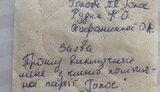 Голові ПП Голос
Рудик К.О.
Стефанишиної О.А.
Заява
Прошу виключити
мене з членів політич-
ної партії Голос.